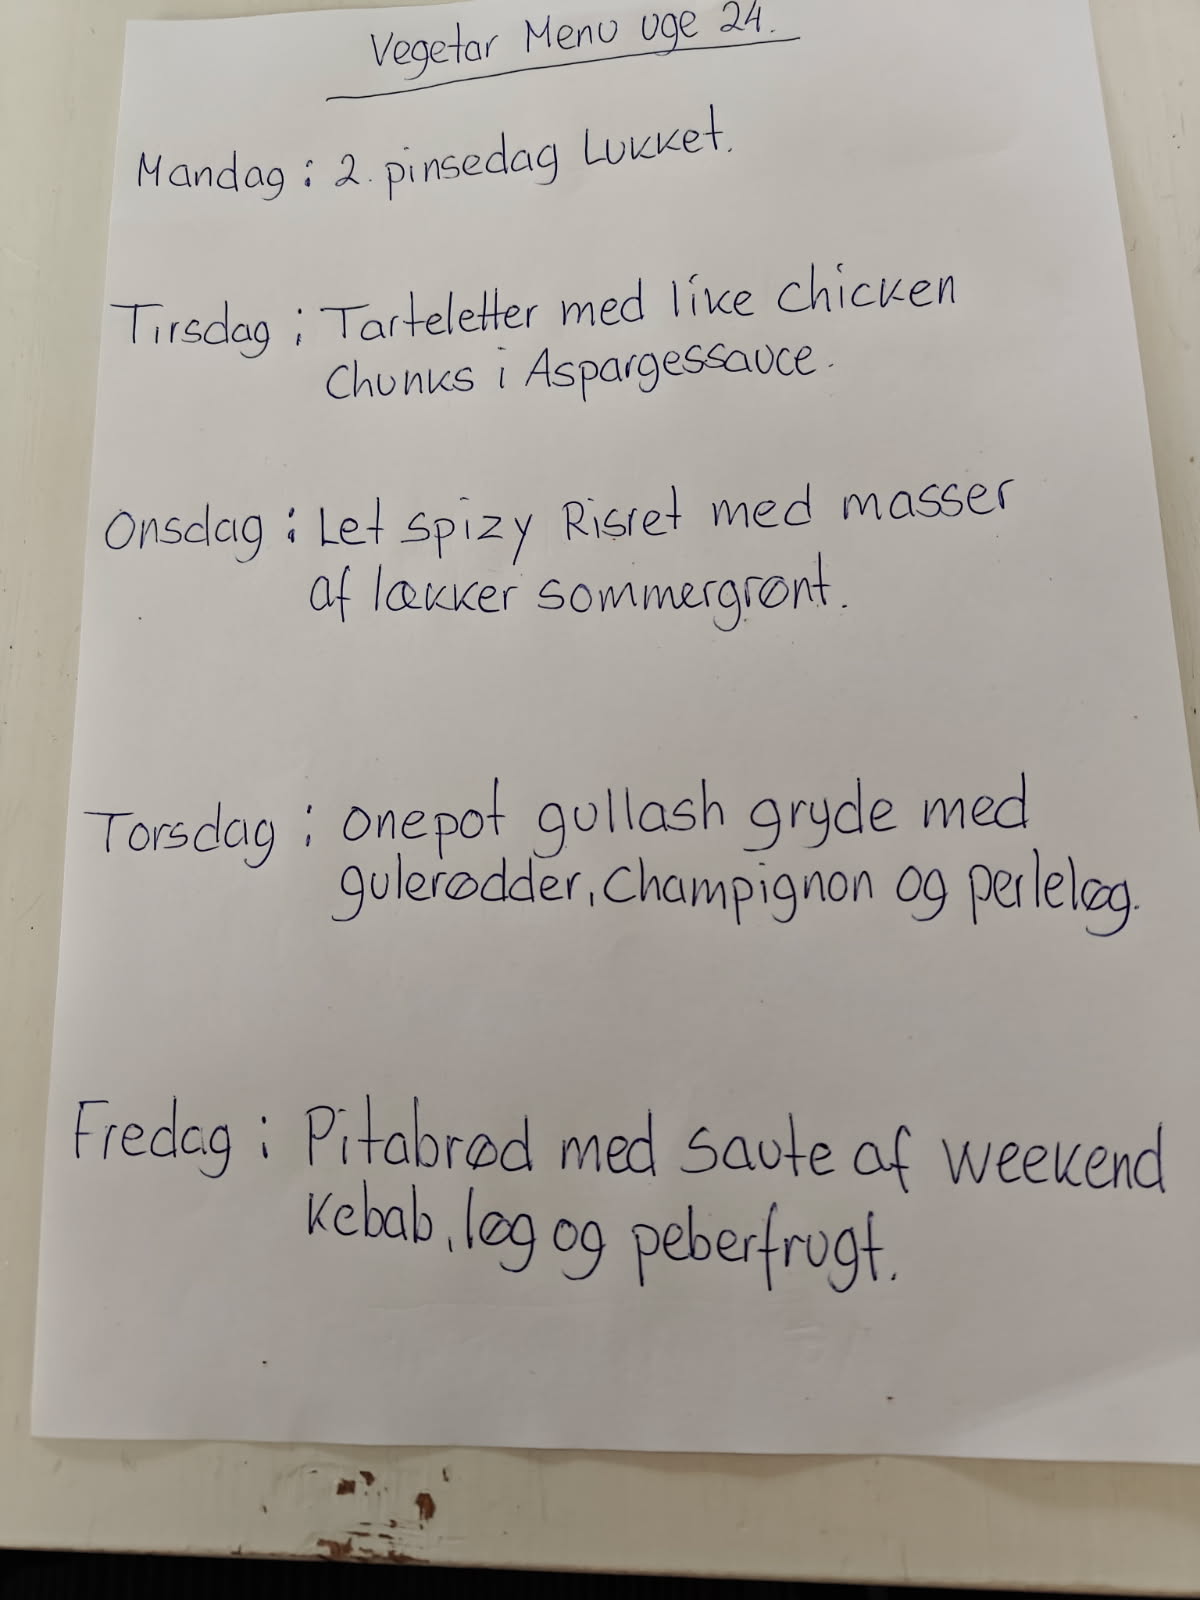 Vegetar Menu uge 24.
Mandag : 2. pinsedag Lukket.
Tirsdag : Tarteletter med like chicken
Chunks i Aspargessauce.
Onsdag : Let spizy Risret med masser
af lækker sommergrønt.
Torsdag : onepot gullash gryde med
gulerødder, Champignon og perleløg.
Fredag : Pitabrød med saute af weekend
Kebab, løg og peberfrugt.